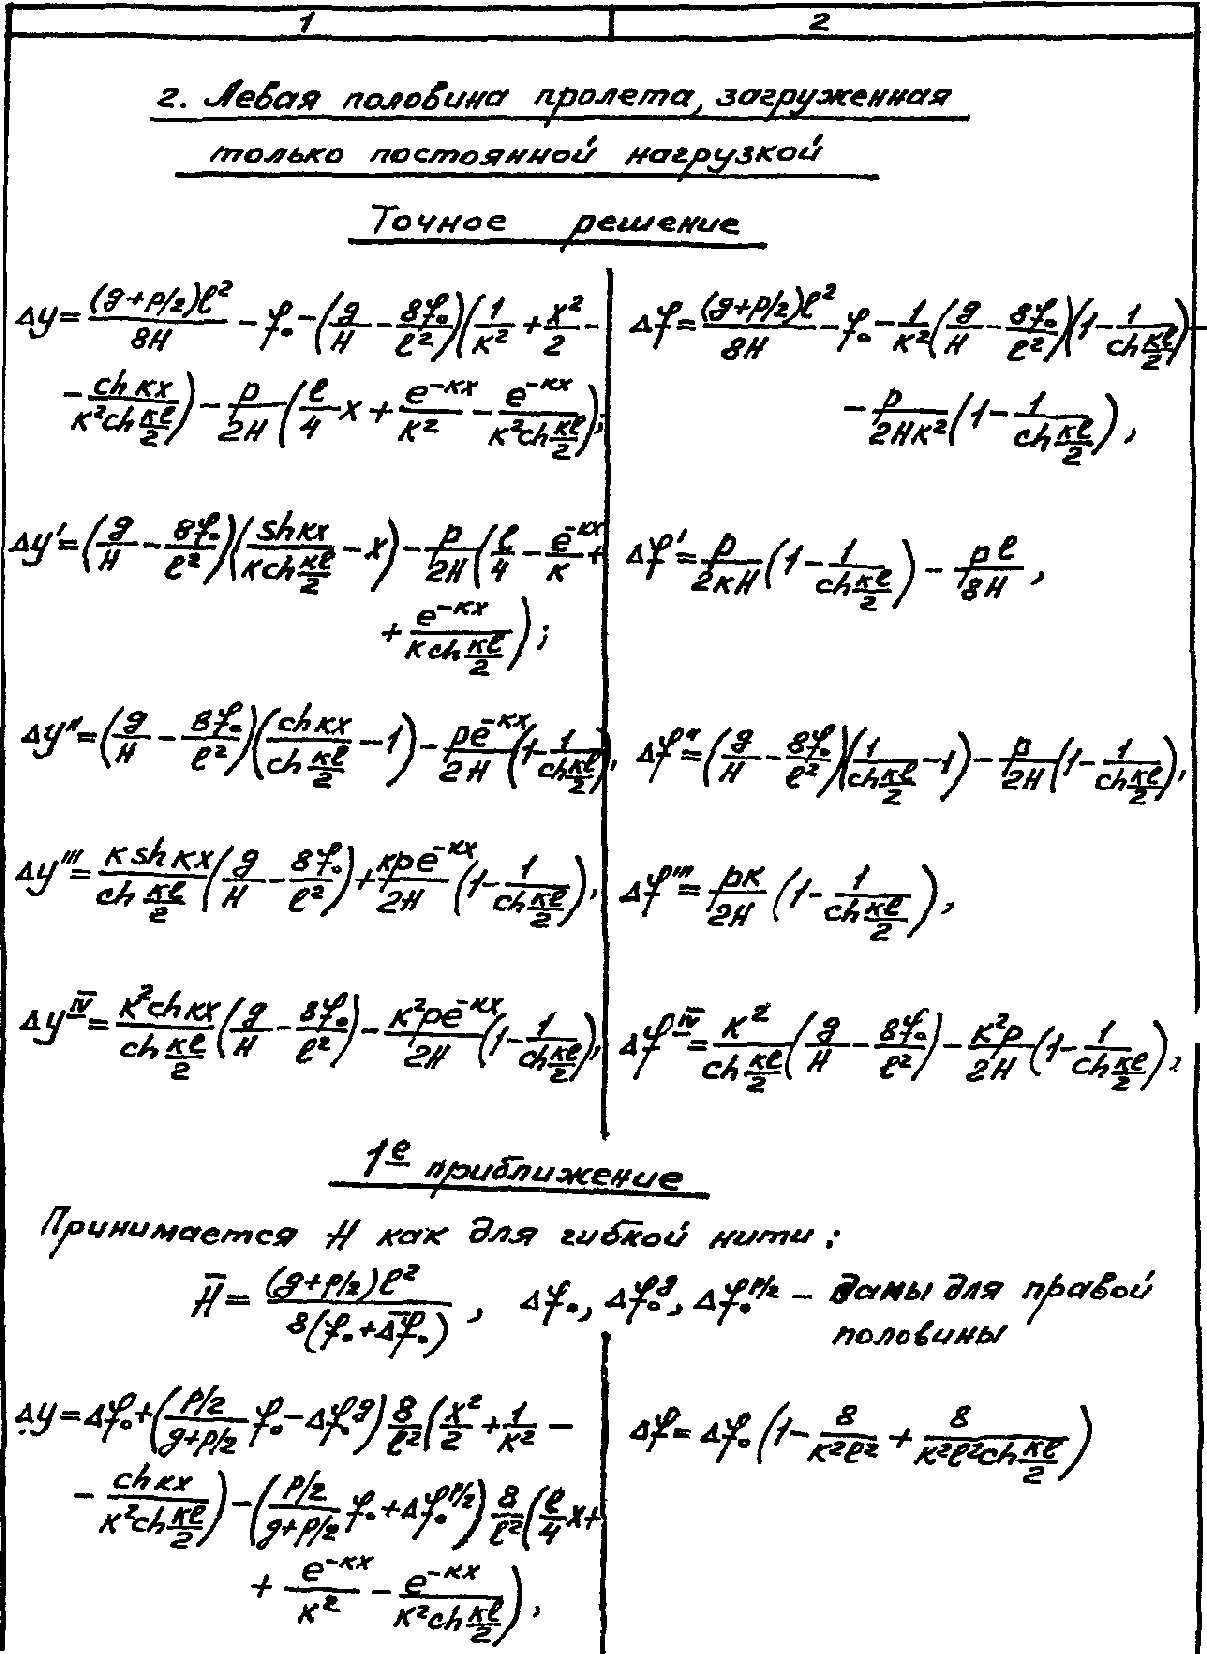 1 2
г. Левая половина пролета, загруженная
только постоянной нагрузкой
Точное решение
Δy = \frac{(g+p/2)ℓ^2}{8H} - f_0 - (\frac{g}{H} - \frac{8f_0}{ℓ^2})(\frac{1}{к^2} + \frac{x^2}{2} -
- \frac{ch кx}{к^2 ch \frac{кℓ}{2}}) - \frac{p}{2H}(\frac{ℓ}{4} - x + \frac{e^{-кx}}{к^2} - \frac{e^{-кx}}{к^2 ch \frac{кℓ}{2}});
Δf = \frac{(g+p/2)ℓ^2}{8H} - f_0 - \frac{1}{к^2}(\frac{g}{H} - \frac{8f_0}{ℓ^2})(1 - \frac{1}{ch \frac{кℓ}{2}}) -
- \frac{p}{2Hк^2}(1 - \frac{1}{ch \frac{кℓ}{2}}),
Δy' = (\frac{g}{H} - \frac{8f_0}{ℓ^2})(\frac{sh кx}{к ch \frac{кℓ}{2}} - x) - \frac{p}{2H}(\frac{ℓ}{4} - \frac{e^{-кx}}{к} +
+ \frac{e^{-кx}}{к ch \frac{кℓ}{2}});
Δf' = \frac{p}{2кH}(1 - \frac{1}{ch \frac{кℓ}{2}}) - \frac{pℓ}{8H},
Δy'' = (\frac{g}{H} - \frac{8f_0}{ℓ^2})(\frac{ch кx}{ch \frac{кℓ}{2}} - 1) - \frac{pe^{-кx}}{2H}(1 - \frac{1}{ch \frac{кℓ}{2}}),
Δf'' = (\frac{g}{H} - \frac{8f_0}{ℓ^2})(\frac{1}{ch \frac{кℓ}{2}} - 1) - \frac{p}{2H}(1 - \frac{1}{ch \frac{кℓ}{2}}),
Δy''' = \frac{к sh кx}{ch \frac{кℓ}{2}}(\frac{g}{H} - \frac{8f_0}{ℓ^2}) + \frac{кpe^{-кx}}{2H}(1 - \frac{1}{ch \frac{кℓ}{2}}),
Δf''' = \frac{pк}{2H}(1 - \frac{1}{ch \frac{кℓ}{2}}),
Δy^{IV} = \frac{к^2 ch кx}{ch \frac{кℓ}{2}}(\frac{g}{H} - \frac{8f_0}{ℓ^2}) - \frac{к^2pe^{-кx}}{2H}(1 - \frac{1}{ch \frac{кℓ}{2}}),
Δf^{IV} = \frac{к^2}{ch \frac{кℓ}{2}}(\frac{g}{H} - \frac{8f_0}{ℓ^2}) - \frac{к^2p}{2H}(1 - \frac{1}{ch \frac{кℓ}{2}}),
1е приближение
Принимается H как для гибкой нити:
\bar{H} = \frac{(g+p/2)ℓ^2}{8(f_0+\bar{Δf}_0)}, Δf_0, Δf_0^g, Δf_0^{p/2} - даны для правой
половины
Δy = Δf_0 + (\frac{p/2}{g+p/2} f_0 - Δf_0^g) \frac{8}{ℓ^2}(\frac{x^2}{2} + \frac{1}{к^2} -
- \frac{ch кx}{к^2 ch \frac{кℓ}{2}}) - (\frac{p/2}{g+p/2} f_0 + Δf_0^{p/2}) \frac{8}{ℓ^2}(\frac{ℓ}{4} x +
+ \frac{e^{-кx}}{к^2} - \frac{e^{-кx}}{к^2 ch \frac{кℓ}{2}}),
Δf = Δf_0 (1 - \frac{8}{к^2ℓ^2} + \frac{8}{к^2ℓ^2 ch \frac{кℓ}{2}})